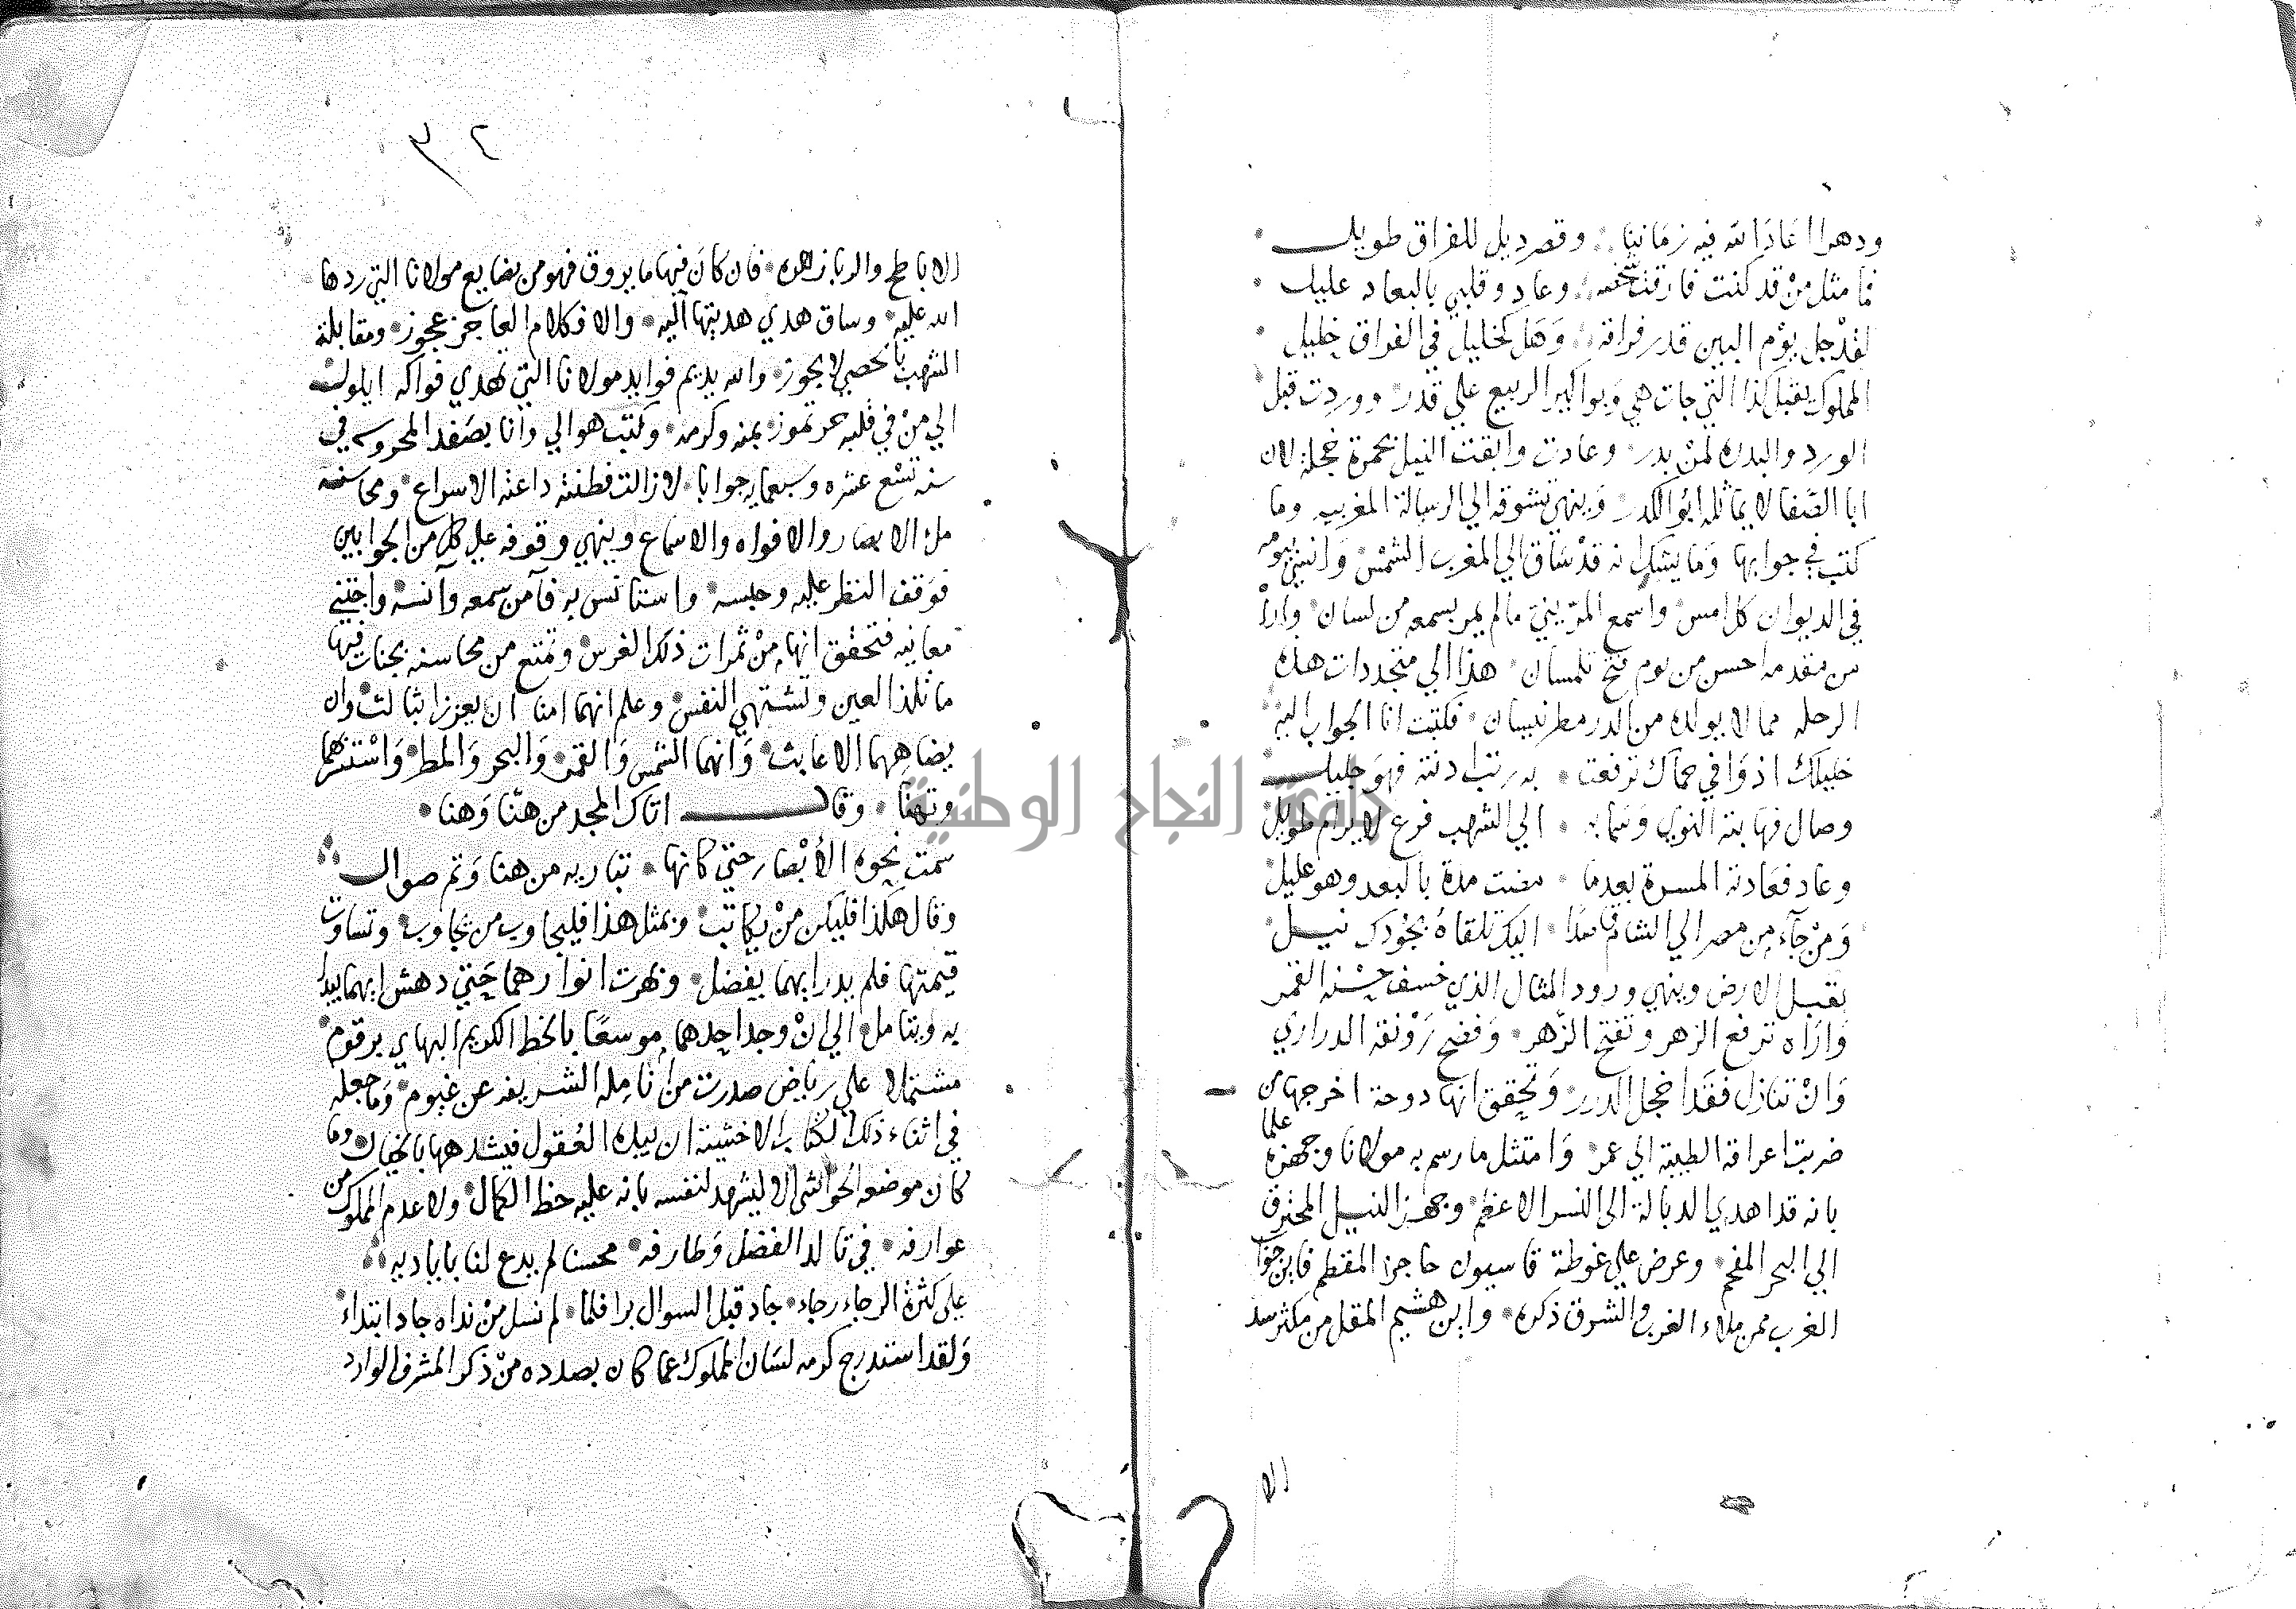 ودهرا اعاد الله فيه زماننا وقصر ذيل للفراق طويل
فما مثل من قد كنت فارقت شخصه وعاد وقلبي بالبعاد عليل
لقد جل يوم البين قدر فراقه وهل كخليل في الفراق خليل
المملوك يقبل كذا التي جات هي وبواكير الربيع علي قدر ووردت قبل
الورد والبدر لمن بدر وعادت وابقت النيل بحمرة خجله لان
ابا الصفا لا يماثله ابو الكدر وينهي تشوقه الي الرسالة المغربيه وما
كتب في جوابها وما يشك انه قد ساق الي المغرب الشمس وانسي بيومه
في الديوان كل امس واسمع المريني ما لم يمر بسمعه من لسان وارا
من مقدمه احسن من يوم فتح تلمسان هذا الي متجددات هذه
الرحله مما لا يولده من الدر مطر نيسان فكتبت انا الجواب اليه
خليلك اذ وافي حماك ترفعت به رتب ادنته فهو جليل
وصال فهابته النوي وسما به الي الشهب فرع لا يرام طويل
وعاد فعادته المسرة بعدما مضت مدة بالبعد وهو عليل
ومن جاء من مصر الي الشام قاصدا اليك تلقاه بجودك نيل
يقبل الارض وينهي ورود المثال الذي خسف حسنه القمر
واراه ترفع الزهر وتفتح الزهر وفضح رونقه الدراري
وان تنازل فقد اخجل الدرر وتحقق انها دوحة اخرجها من
ضربت اعراقه الطيبة الي عمر وامتثل ما رسم به مولانا وجهزه علما
بانه قد اهدي الذبالة الى النسر الاعظم وجهز النيل المحترق
الي البحر المفخم وعرض علي غوطة قاسيون حاجز المقطم فاين جوا
الغرب ممن ملاء الغرب والشرق ذكره واين هشيم المقل من مكثر سد
الا
٣٢
الاباطح والربا زهره فان كان فيها ما يروق فهو من بضايع مولانا التي ردها
الله عليه وساق هدي هديتها اليه والا فكلام العاجز عجوز ومقابلة
الشهب بالحصي لا يجوز والله يديم فوايد مولانا التي تهدي فواكه ايلول
الي من في قلبه حر تموز بمنه وكرمه وكتب هو الي وانا بصفد المحروسه في
سنه تسع عشره وسبعمايه جوابا لا زالت فطنته داعنه الاسراع ومحاسنه
مل الابصار والافواه والاسماع وينهي وقوفه علي كل من الجوابين
فوقف النظر عليه وحبسه واستانس به فآمن سمعه وآنسه واجتني
معانيه فتحقق انها من ثمرات ذلك الغرس وتمتع من محاسنه بجنات فيها
ما تلذ العين وتشتهي النفس وعلم انهما امنا ان يعززا بثالث وان
يضاهيهما الا عابث وانهما الشمس والقمر والبحر والمطر واستنزههما
وتهنا وقال اتاك المجد من هنا وهنا
سمت نحوه الأبصار حتي كانها تباريه من هنا وثم صوال
وقال هكذا فليكن من يكاتب وبمثل هذا فليجاوب من يجاوب وتساوت
قيمتها فلم يدر ايهما يفضل وبهرت انوارهما حتي دهش ايهما يبدا
به ويتامل الي ان وجد احدهما موسعًا بالخط الكريم البهاي مرقوم
مشتملا علي رياض صدرت من انامله الشريفه عن غيوم وما جعله
في اثناء ذلك الكتاب الا خشية ان يبده العقول فيشدهها بالخيال وما
كان موضعه الحواشي الا ليشهد لنفسه بانه عليه حظ الكمال ولا عدم المملوك من
عوارفه في تالد الفضل وطارفه محسنا لم يدع لنا باياديه
علي كثرة الرجاء رجاء جاد قبل السوال برا فلما لم نسل من نداه جاد ابتداء
ولقد استدرج كرمه لسان المملوك عما كان بصدده من ذكر المشرف الوارد
جامعة النجاح الوطنية